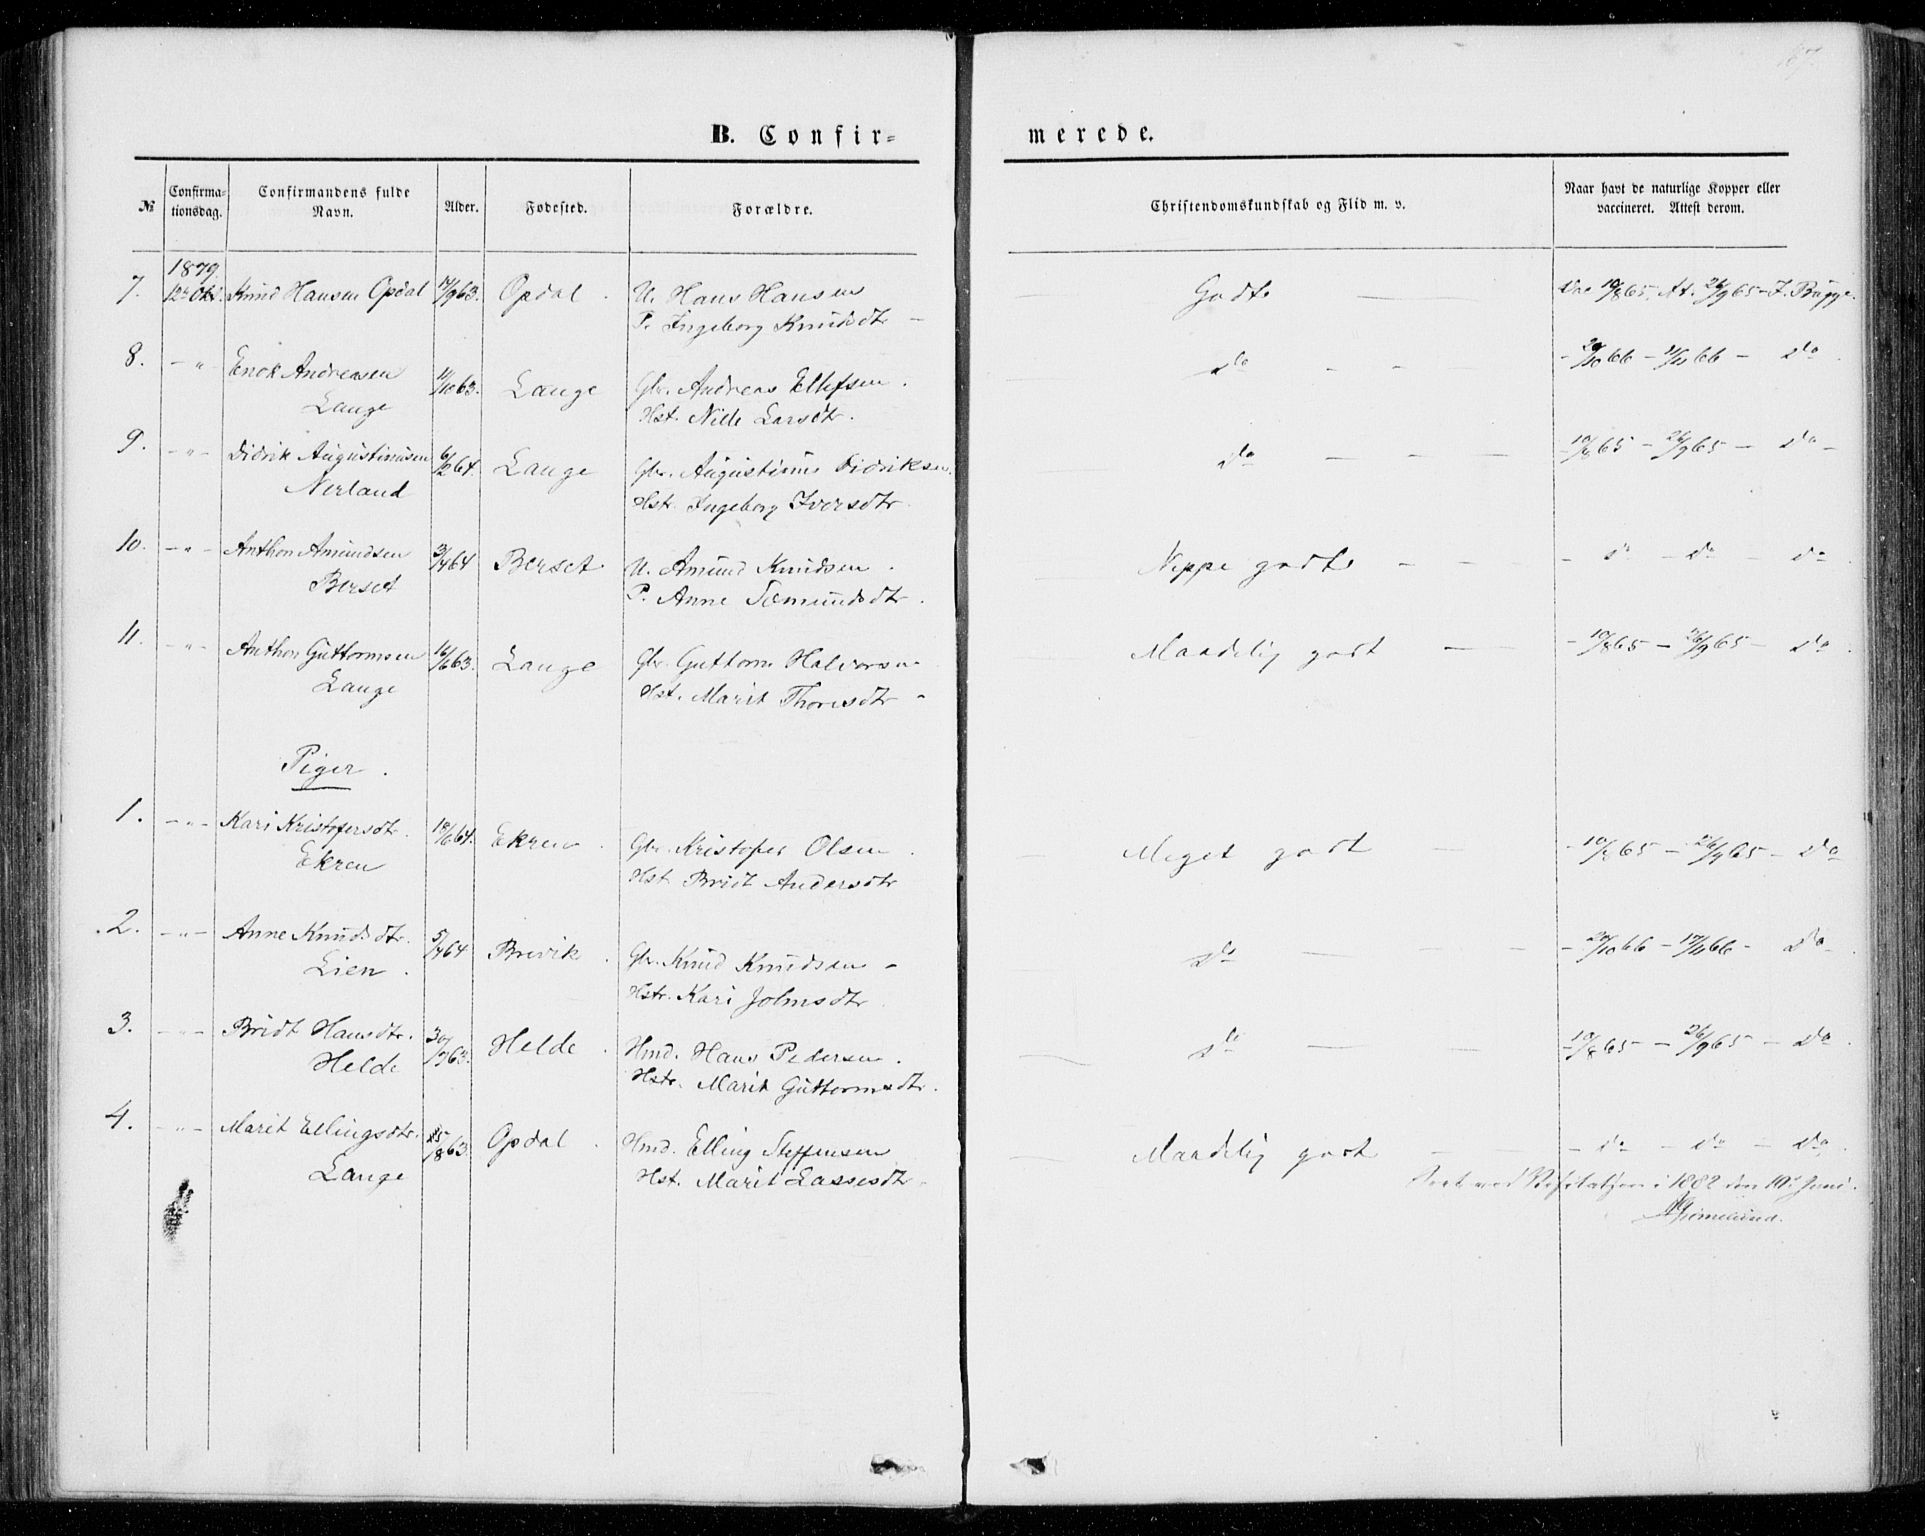 B. Confir=
merede.
№
Confirma=
tionsdag.
Confirmandens fulde
Navn.
Alder.
Fødested.
Forældre.
Christendomskundskab og Flid m. v.
Naar havt de naturlige Kopper eller
vaccineret. Attest derom.
1879.
7. 12te Okt. Knud Hansen Opdal 17/9 63. Opdal. U. Hans Hansen Godt — Vac 10/8 65. At. 26/9 65 - J. Bugge.
P. Ingeborg Knudsdtr —
8. - " Enok Andreasen 11/10 63. Lange Gbr. Andreas Ellefsen. do - - - - 29/10 66 - 11/11 66 - do.
Lange Hst. Nille Larsdtr.
9. - " - Didrik Augustinusen 6/2 64. Lange Gbr. Augustinus Didriksen. do — — — - 10/8 65 - 26/9 65 - do -
Nerland Hstr. Ingeborg Iversdtr.
10. - " - Anthon Amundsen 3/4 64 Berset U. Amund Knudsen. Neppe godt - - - do - do - do.
Berset P. Anne Tømundsdtr.
11. - " - Anthon Guttormsen 16/6 63. Lange Gbr. Guttorm Halvorsen Maadelig godt — — - 10/8 65 - 26/9 65 - do.
Lange Hst. Marit Thoresdtr -
Piger.
1. - " - Kari Kristofersdtr. 18/6 64. Ekren. Gbr. Kristofer Olsen. Meget godt — - 10/8 65 - 26/9 65 - do
Ekren Hst. Bridt Andersdtr
2. - " - Anne Knudsdtr. 5/4 64 Brevik. Gbr. Knud Knudsen - do — — - - 29/10 66 - 11/11 66 - do -
Lien. Hstr. Kari Johnsdtr.
3. - " - Bridt Hansdtr. 63. Helde. Hmd. Hans Pedersen. do — — — - 10/8 65 - 26/9 65 - do.
Helde Hstr. Marit Guttormsdtr.
4. - " - Marit Ellingsdtr. 25/8 63. Opdal. Hmd. Elling Steffensen Maadelig godt — — - do - do - do.
Lange Hst. Marit Lassesdtr -
Seet ved Visitatsen i 1882 den 10de Juni.